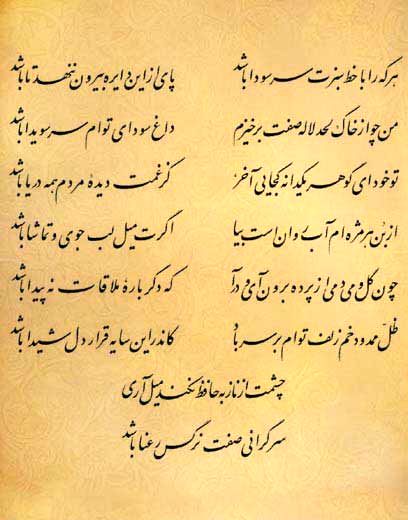 هر که را با خط سبزت سر سودا باشد پای از این دایره بیرون ننهد تا باشد
من چو از خاک لحد لاله صفت برخیزم داغ سودای توام سر سویدا باشد
تو خود ای گوهر یکدانه کجایی آخر کز غمت دیدهٔ مردم همه دریا باشد
از بن هر مژه ام آب روان است بیا اگرت میل لب جوی و تماشا باشد
چون گل و می دمی از پرده برون آی و درآ که دگرباره ملاقات نه پیدا باشد
ظلّ ممدود خم زلف توام بر سر باد کاندر این سایه قرار دل شیدا باشد
چشمت از ناز به حافظ نکند میل آری
سرگرانی صفت نرگس رعنا باشد